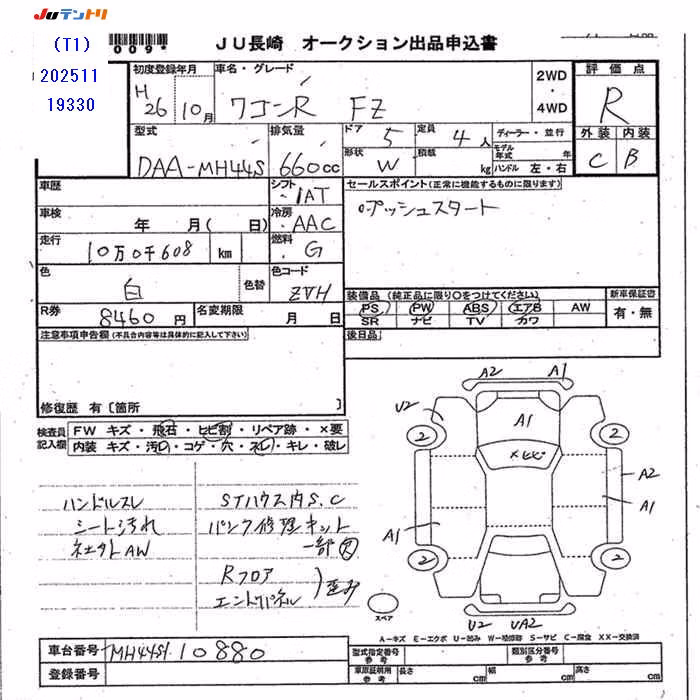 JUテントリ
(T1)
202511
19330
009*
JU長崎 オークション出品申込書
初度登録年月
H26 10月
車名・グレード
ワゴンR FZ
2WD
・
4WD
評価点
R
外装 内装
C B
型式
DAA-MH44S
排気量
660cc
ドア 5
定員 4人
形状 W
積載 kg
ディーラー・並行
モデル年式 年
ハンドル 左・右
車歴
シフト IAT
セールスポイント(正常に機能するものに限ります)
プッシュスタート
車検 年 月( 日)
冷房 AAC
走行 10万0千608 km
燃料 G
色 白
色替
色コード ZVH
R券 8460円
名変期限 月 日
装備品 (純正品に限り○をつけてください)
PS PW ABS エアB AW
SR ナビ TV カワ
新車保証書
有・無
注意事項申告欄(不具合内容等は具体的に記入して下さい)
後日品
修復歴 有〔箇所 〕
検査員記入欄
FW キズ・飛石・ヒビ割・リペア跡・×要
内装 キズ・汚レ・コゲ・穴・スレ・キレ・破レ
ハンドルスレ
シート汚れ
社外AW
STハウス内S.C
パンク修理キット
一部欠
Rフロア
エンドパネル
歪み
A2 A1
U2
A1
×ヒビ
2 2
A2
A1
A1
2 2
U2 UA2
スペア
A-キズ E-エクボ U-凹み W-補修跡 S-サビ C-腐食 XX-交換済
車台番号 MH44S-10880
登録番号
型式指定番号 参考
類別区分番号 参考
車庫証明用 参考
長さ cm
幅 cm
高さ cm